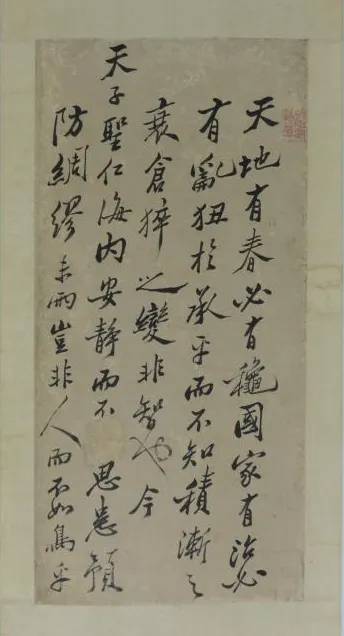 天地有春必有穐國家有治必
有亂狃於承平而不知積漸之
衰倉猝之變非智也今
天子聖仁海內安靜而不思患預
防綢繆未雨豈非人而不如鳥乎